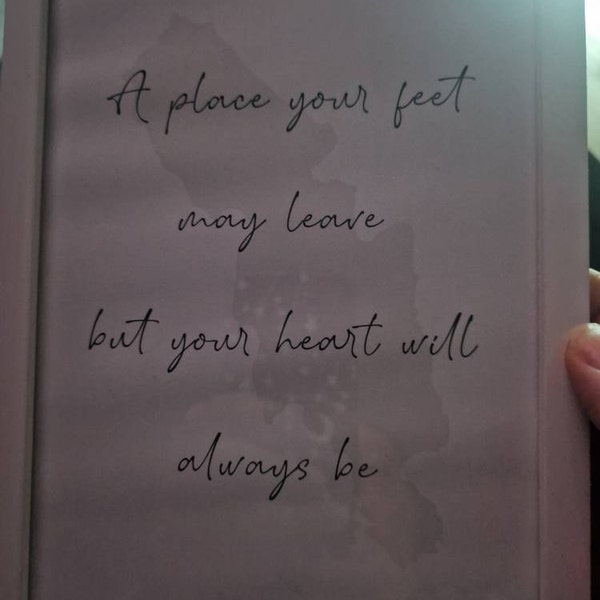 A place your feet
may leave
but your heart will
always be